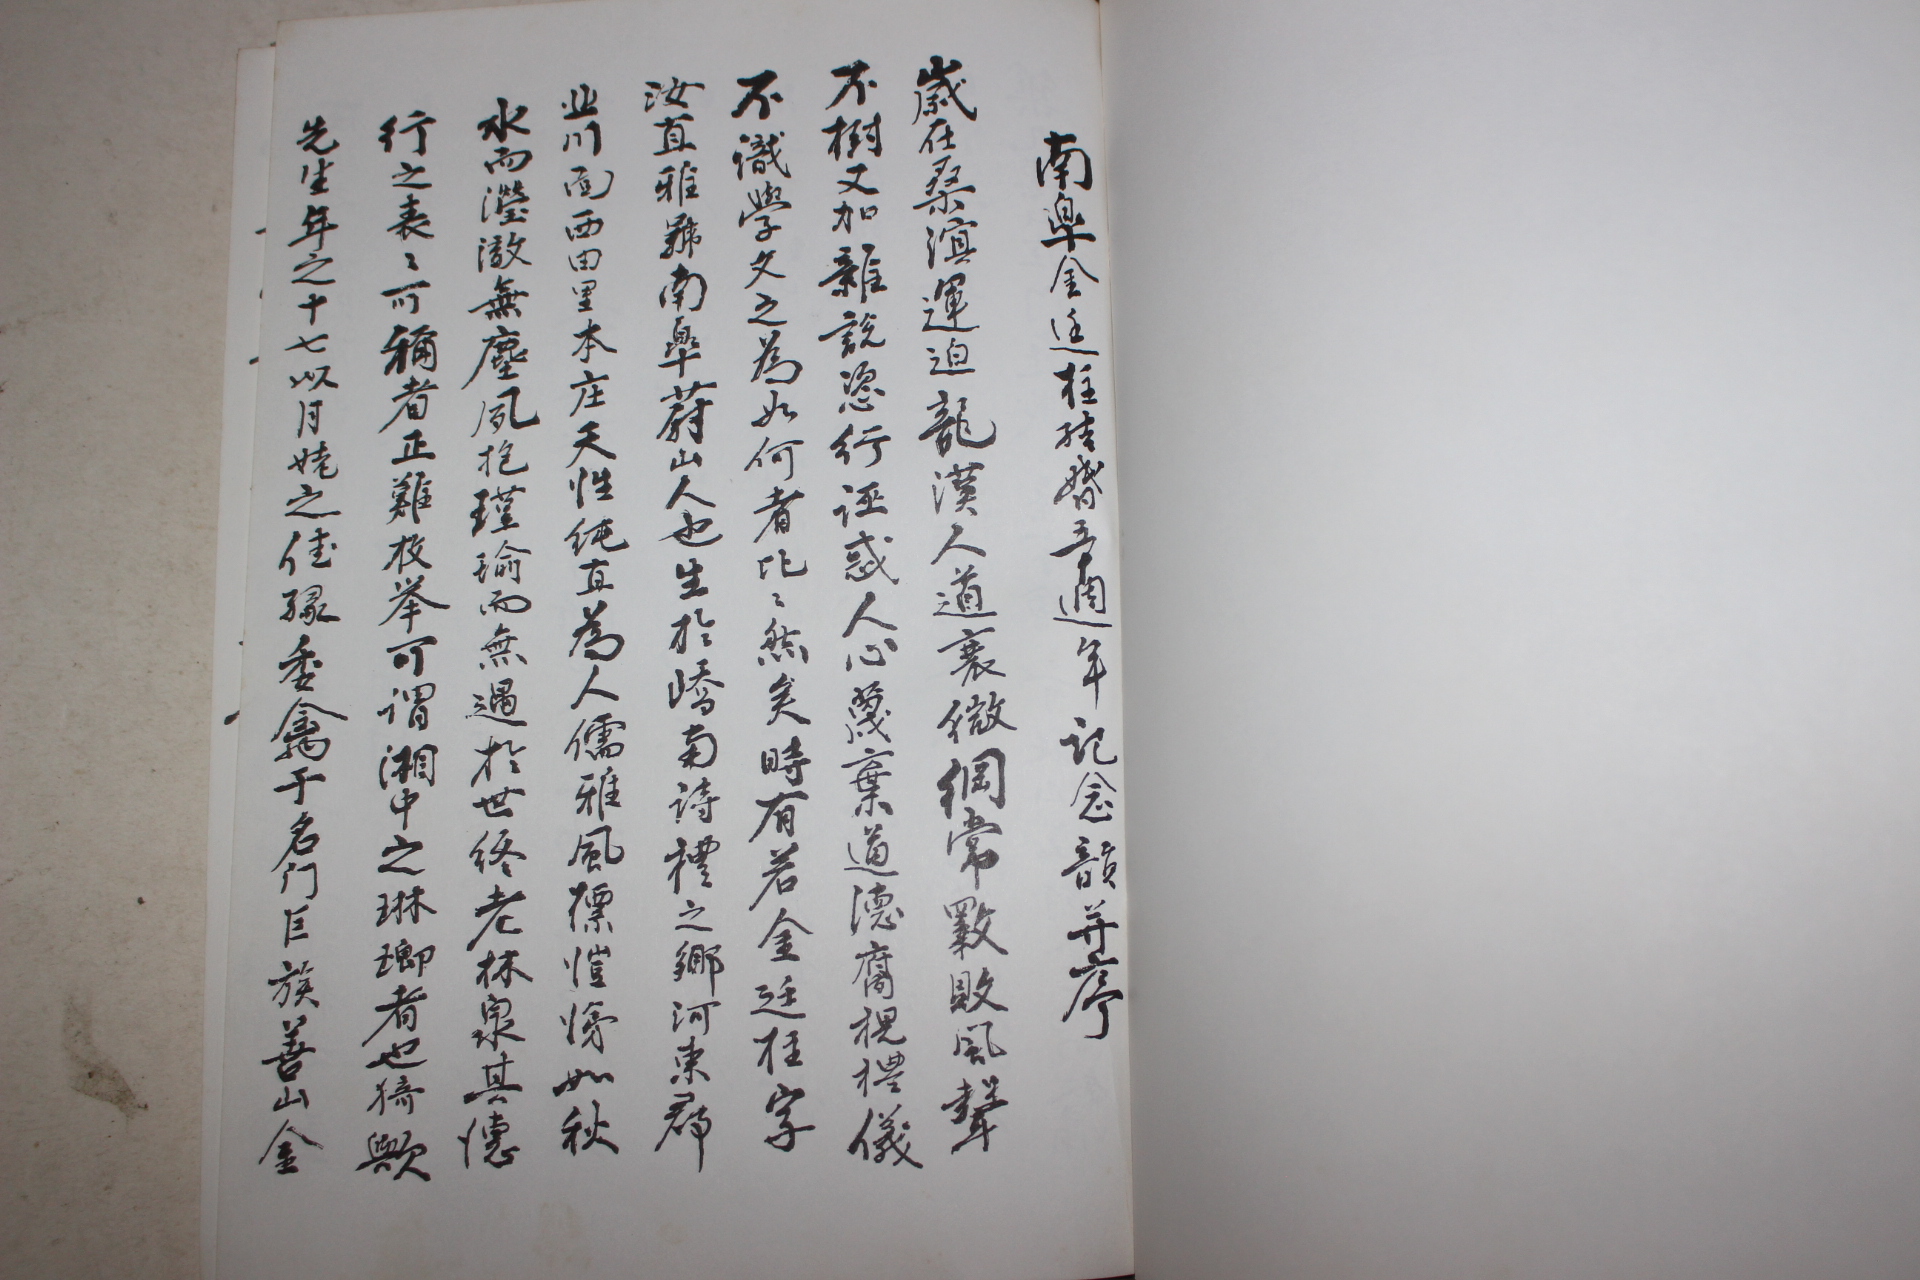 南皐金廷柱結婚五十週年記念韻并序
歲在桑溟運迫龍漢人道衰微綱常斁敗風聲
不樹又加雜說恣行誣惑人心蔑棄道德腐視禮儀
不識學文之爲如何者比〻然矣時有若金廷柱字
汝直雅號南皐蔚山人也生於嶠南詩禮之鄉河東郡
北川面西田里本庄天性純直爲人儒雅風標愷悌如秋
水而瀅澈無塵夙抱瑾瑜而無遇於世終老林泉其德
行之表〻可稱者正難枚举可謂湖中之琳瑯者也猗歟
先生年之十七以月姥之佳緣委禽于名門巨族善山金